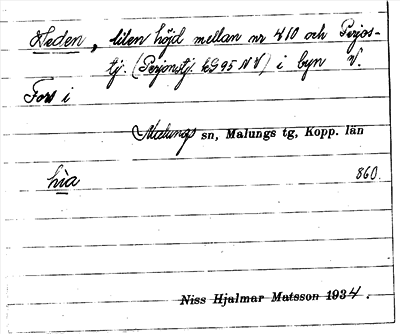 Heden, liten höjd mellan nr 410 och Perjos-
tj. (Perjonstj. kG95NV) i byn V.
Fors i
Malungs sn, Malungs tg, Kopp. län
hìa 860.
Niss Hjalmar Matsson 1934.